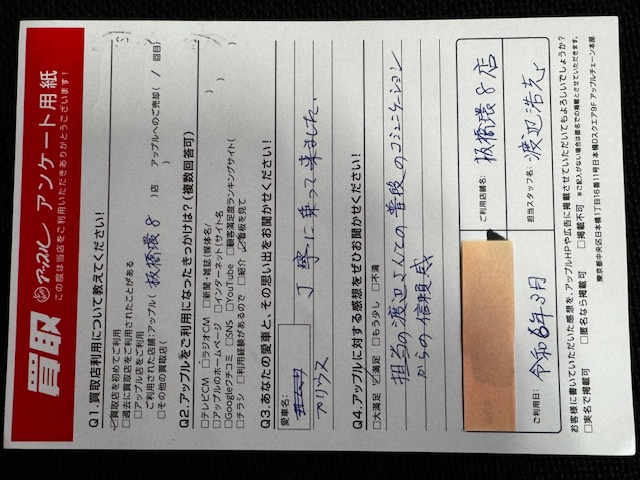 買取 アップル アンケート用紙
この度は当店をご利用いただきありがとうございます！
Q1.買取店利用について教えてください！
☑買取店を初めてご利用
□過去に買取店をご利用されたことがある
□アップル店をご利用
ご利用された店舗:アップル( 板橋環8 )店 アップルへのご売却( / 回目)
□その他の買取店( )
Q2.アップルをご利用になったきっかけは？(複数回答可)
□テレビCM □ラジオCM □新聞・雑誌(媒体名/ )
□アップルのホームページ □インターネット(サイト名 )
□Googleクチコミ □SNS □YouTube □顧客満足度ランキングサイト( )
□チラシ □利用経験があるので □紹介 ☑看板を見て
Q3.あなたの愛車と、その思い出をお聞かせください！
愛車名:
プリウス
丁寧に乗って来ました、
Q4.アップルに対する感想をぜひお聞かせください！
□大満足 ☑満足 □もう少し □不満
担当の渡辺さんとの普段のコミュニケーション
からの信頼感
ご利用店舗名: 板橋環8店
担当スタッフ名: 渡辺浩充
ご利用日: 令和6年3月
お客様に書いていただいた感想を、アップルHPや広告に掲載させていただいてもよろしいでしょうか？
※ご記入がない場合は匿名での掲載とさせていただきます。
□実名で掲載可 □匿名なら掲載可 □掲載不可
東京都中央区日本橋1丁目16番11号日本橋Dスクエア9F アップルチェーン本部